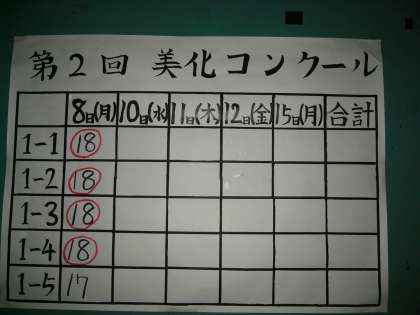 第2回 美化コンクール
8日(月) 10日(水) 11日(木) 12日(金) 15日(月) 合計
1-1 18
1-2 18
1-3 18
1-4 18
1-5 17